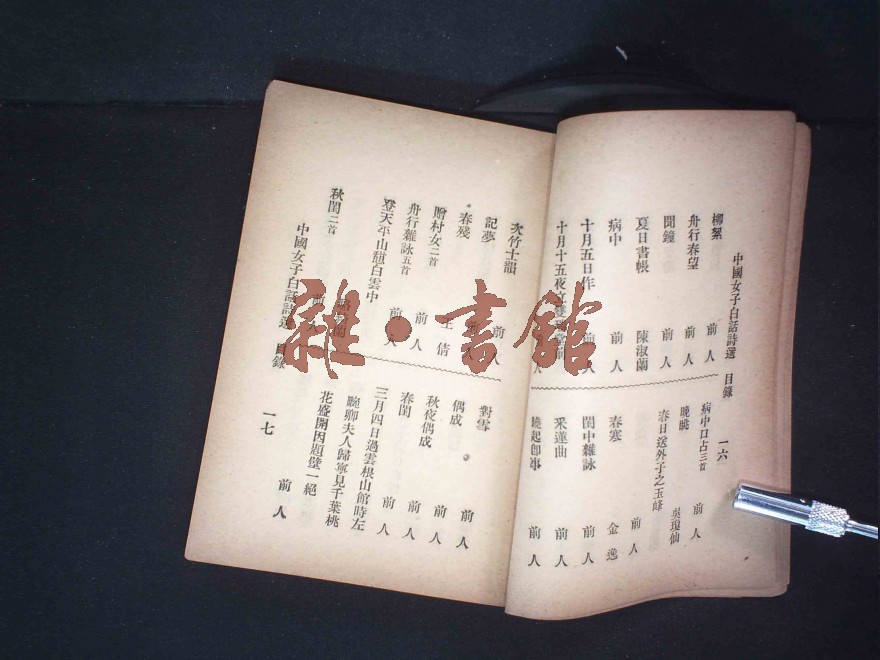 中國女子白話詩選 目錄 一六
柳絮 前人
舟行春望 前人
聞鐘 前人
夏日書帳 陳淑蘭
病中 前人
十月五日作 前人
十月十五夜
病中口占三首 前人
晚眺 吳瓊仙
春日送外子之玉峰 前人
春寒 金逸
閨中雜詠 前人
采蓮曲 前人
曉起卽事 前人
次竹士韻 前人
記夢
春殘
贈村女二首 王倩
舟行雜詠五首 前人
登天平山憩白雲中 前人
秋閨二首
對雪 前人
偶成 前人
秋夜偶成 前人
春閨 前人
三月四日過雲根山館時左
畹卿夫人歸寧見千葉桃
花盛開因題壁一絕 前人
中國女子白話詩選 目錄 一七
雜·書館